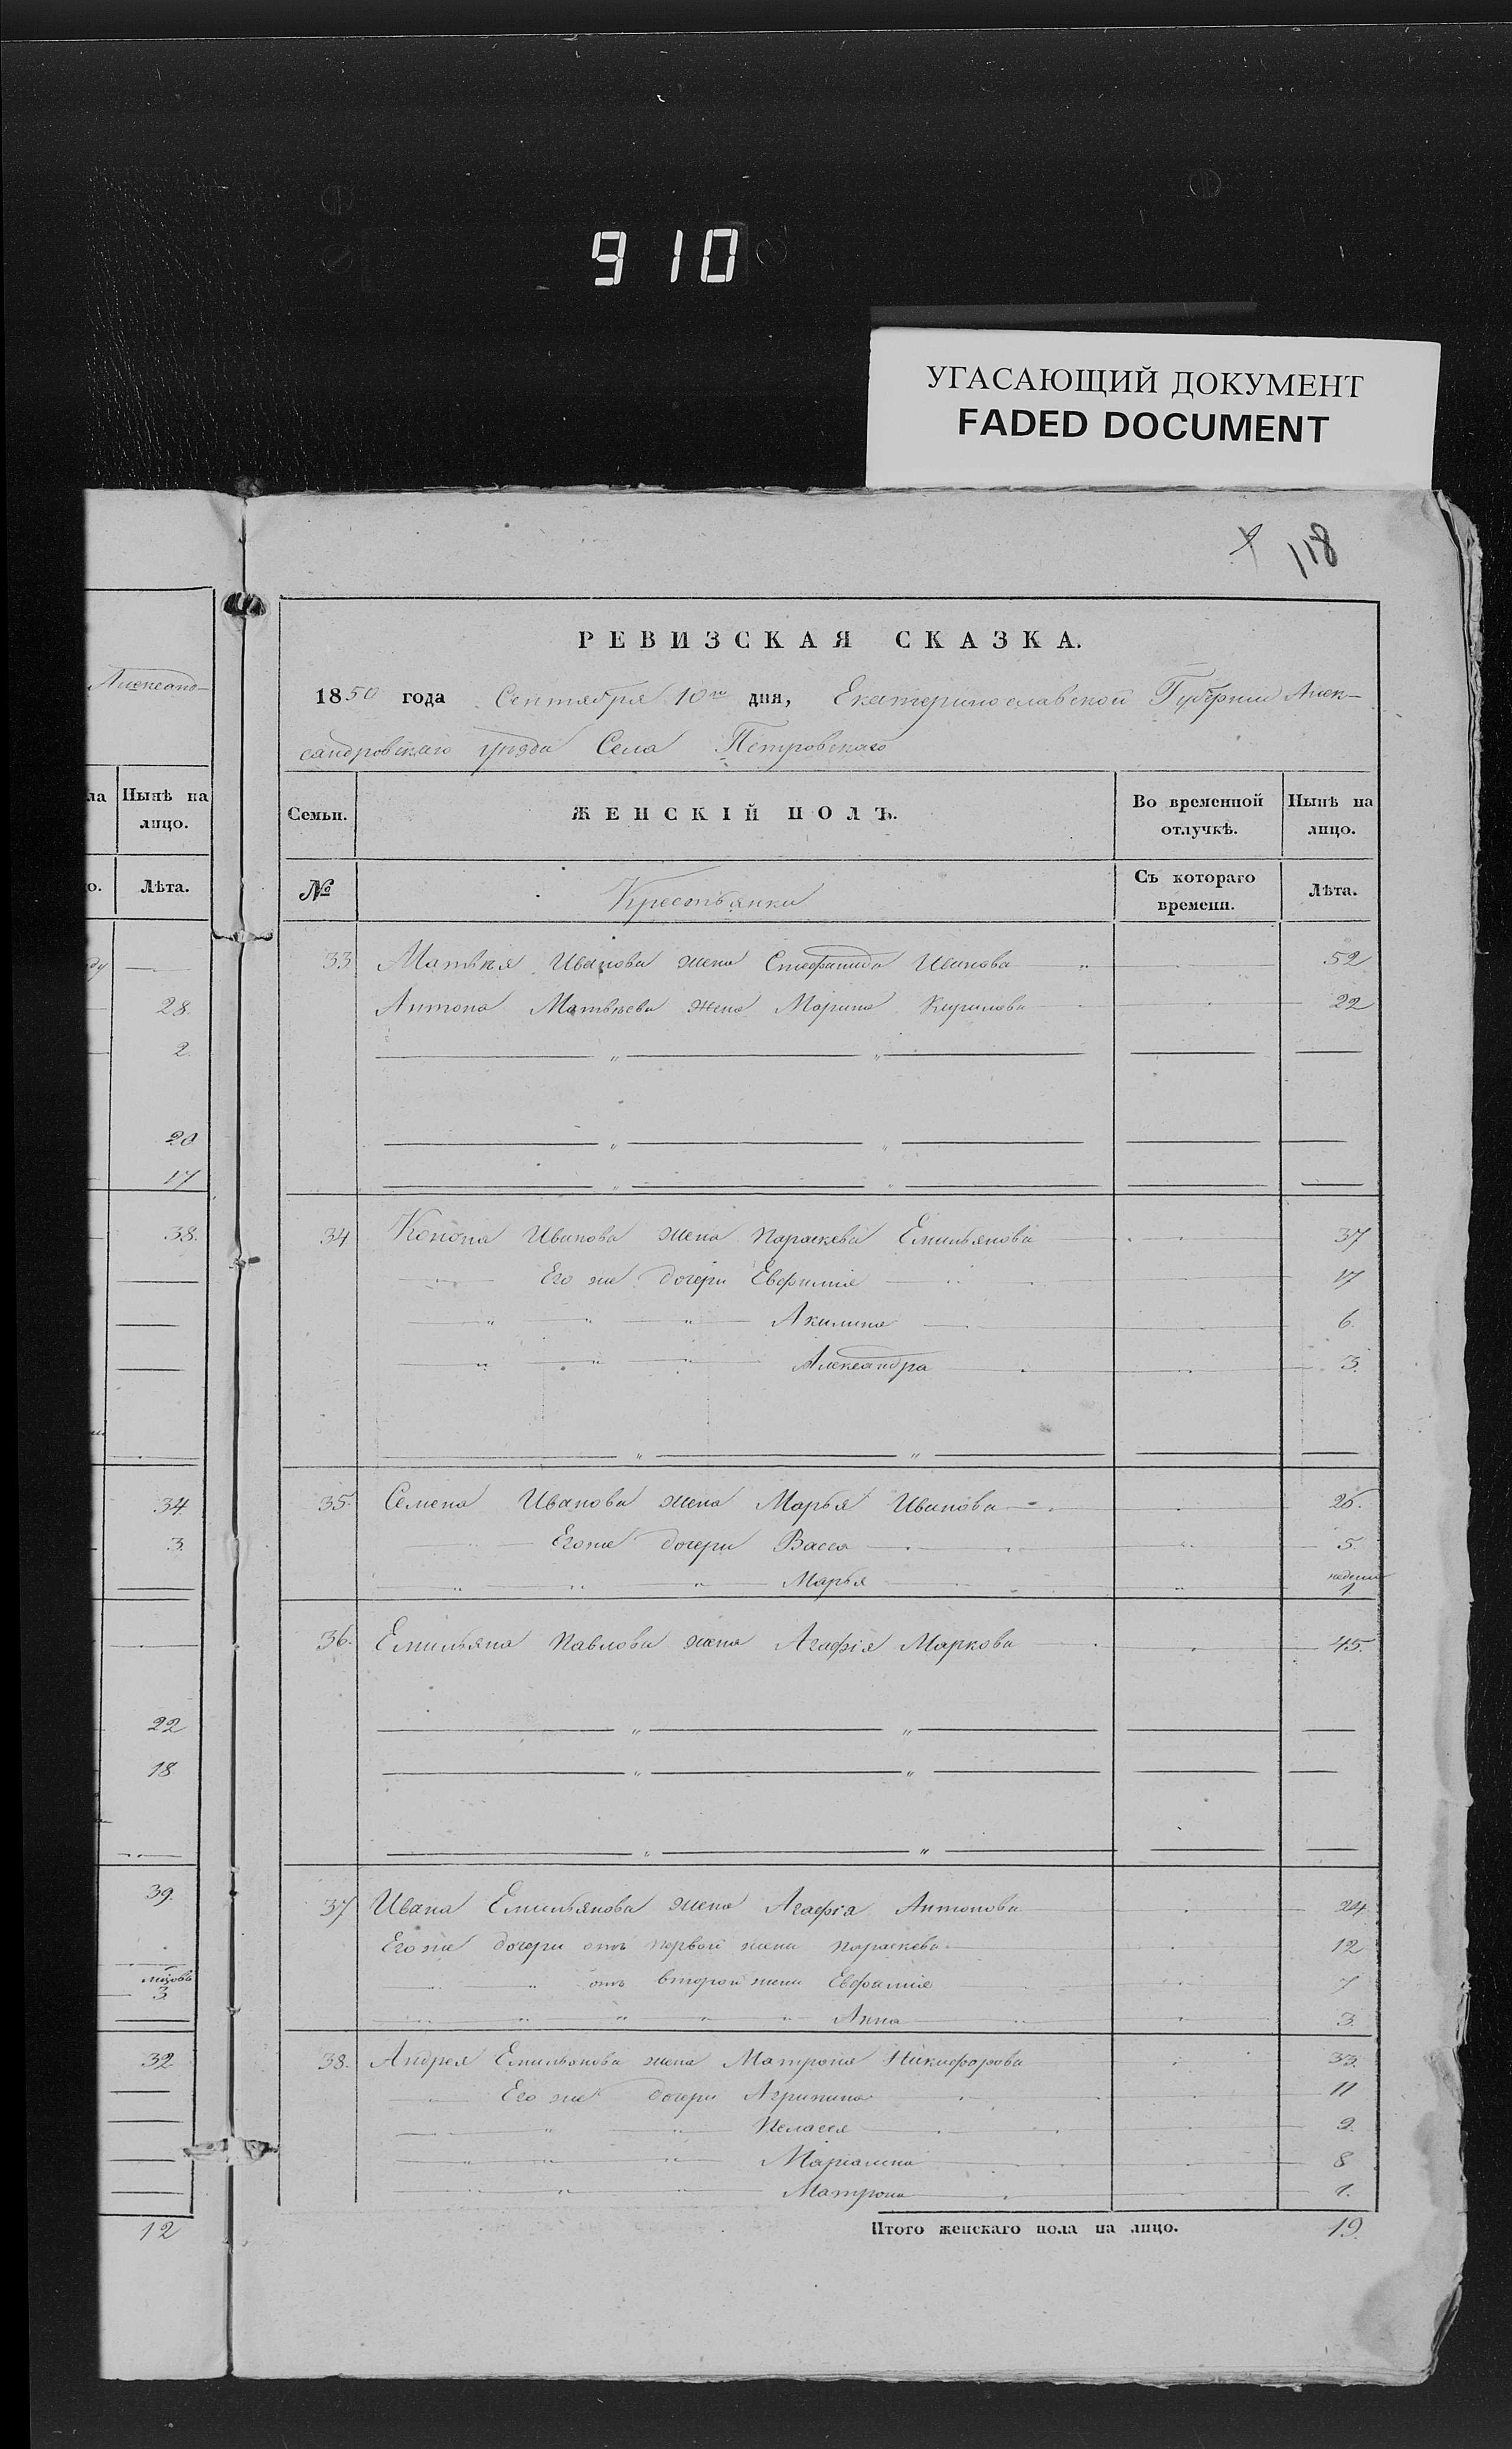 910
УГАСАЮЩИЙ ДОКУМЕНТ
FADED DOCUMENT
118
Александ-
РЕВИЗСКАЯ СКАЗКА.
1850 года Сентября 10го дня, Екатеринославской Губернии Алек-
сандровскаго уѣзда Села Петровскаго
ла Нынѣ на лицо.
о. Лѣта.
28.
2.
20
17
38.
34.
3.
22
18
39.
3
32
12
Семьи. ЖЕНСКІЙ ПОЛЪ. Во временной отлучкѣ. Нынѣ на лицо.
№ Крестьянки Съ котораго времени. Лѣта.
33 Матвѣя Иванова жена Стефанида Иванова 52
Антона Матвѣева жена Марина Кирилова 22
34 Конона Иванова жена Параскева Емильянова 37
Его же дочери Евфимия 17
Акилина 6.
Александра 3.
35. Семена Иванова жена Марья Иванова 26.
Его же дочери Васса 5.
Марья недели 1
36. Емильяна Павлова жена Агафія Маркова 45.
37 Ивана Емильянова жена Агафія Антонова 24
Его же дочери отъ первой жены Параскева 12
отъ второй жены Евфимия 7
Анна 3.
38. Андрея Емильянова жена Матрона Никифорова 33.
Его же дочери Агрипина 11
Пелагея 9.
Мариамна 8
Матрона 1.
Итого женскаго пола на лицо. 19.